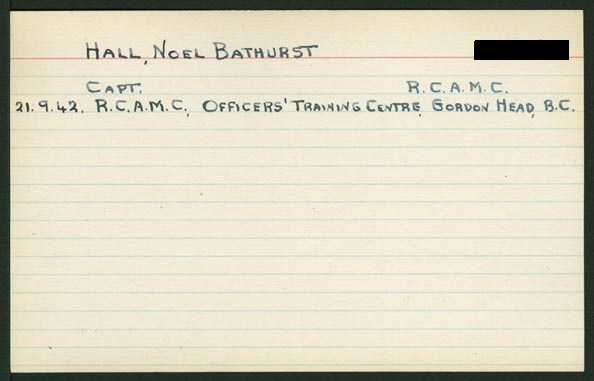 HALL, NOEL BATHURST
CAPT. R.C.A.M.C.
21.9.42. R.C.A.M.C., OFFICERS' TRAINING CENTRE, GORDON HEAD, B.C.